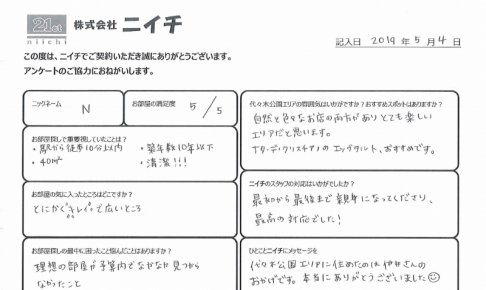 21st
niichi
株式会社 ニイチ
記入日 2019 年 5 月 4 日
この度は、ニイチでご契約いただき誠にありがとうございます。
アンケートのご協力におねがいします。
ニックネーム
N
お部屋の満足度
5/5
お部屋探しで重要視していたことは?
・駅から徒歩10分以内
・築年数10年以下
・40m²
・清潔!!!
お部屋の気に入ったところはどこですか?
とにかくキレイで広いところ
お部屋探しの最中に困ったこと悩んだことはありますか?
理想の部屋が予算内でなかなか見つから
なかったこと
代々木公園エリアの雰囲気はいかがですか?おすすめスポットはありますか?
自然と色々なお店の両方がありとても楽しい
エリアだと思います。
ナタ・デ・クリスチアノのエッグタルト、おすすめです。
ニイチのスタッフの対応はいかがでしたか?
最初から最後まで親身になってくださり、
最高の対応でした!
ひとことニイチにメッセージを
代々木公園エリアに住めたのは伊井さんの
おかげです。本当にありがとうございました